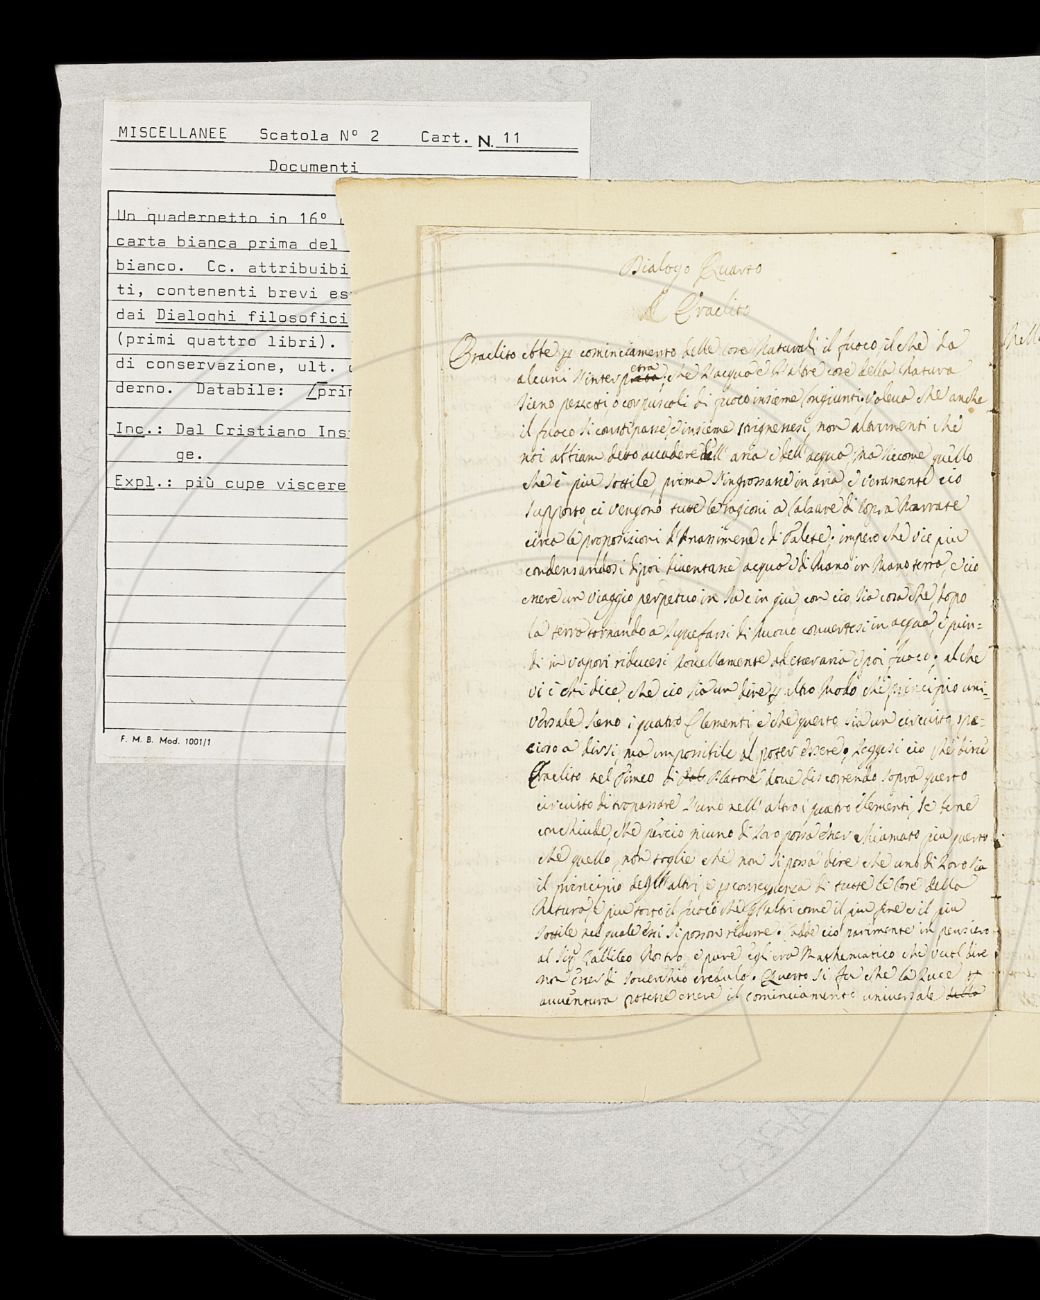 MISCELLANEE Scatola N° 2 Cart. N. 11
Documenti
Un quadernetto in 16°
carta bianca prima del
bianco. Cc. attribuibi
ti, contenenti brevi es
dai Dialoghi filosofici
(primi quattro libri).
di conservazione, ult.
derno. Databile: /prin
Inc.: Dal Cristiano Ins
ge.
Expl.: più cupe viscere
F. M. B. Mod. 1001/1
Dialogo Quarto
Eraclito
Eraclito ebbe p cominciamento delle cose Naturali il fuoco il che da
alcuni s'interpetra, che l'acqua e l'altre cose della Natura
sieno pezzetti o corpuscoli di fuoco insieme congiunti: voleva che anche
il fuoco si constipasse, e insieme strignessesi, non altrimenti che
noi abbiam detto accadere dell'aria e dell'acqua, ma siccome quello
che è piu sottile, prima s'ingrossasse in aria, e veramente cio
supposto, ci vengono tutte le ragioni a calzare di sopra Narrate
circa le proposizioni d'Anassimene e di Talete; impero che vie piu
condensandosi dipoi diventasse acqua e di Mano in Mano terra e cio
essere un viaggio perpetuo in su e in giu, con cio sia cosa che, dopo
la terra tornando a liquefarsi di Nuovo convertesi in acqua, e quin=
di in vapori riducesi novellamente ad essere aria e poi fuoco; al che
vi è chi dice, che cio sia un dire p altro Modo che principio uni=
versale sieno i quatro Elementi e che questo sia un circuito, spe=
cioso a dirsi, ma impossibile al poter essere; leggesi cio che dice
Eraclito nel Timeo di Platone dove discorrendo sopra questo
circuito di trapassare l'uno nell'altro i quatro elementi, se bene
conchiude, che percio niuno di loro possa esser chiamato piu questo
che quello, non toglie che non si possa dire che uno di loro sia
il principio degli altri, e p conseguenza di tutte le cose della
Natura, e piu tosto il fuoco che gli altri come il piu fine e il piu
sottile nel quale essi si possono ridurre. cadde cio parimente in pensiero
al Sig Gallileo Nostro, e pure egli era Mathematico che vuol dire
non esser di soverchio credulo. Questo si fu che la luce p
avventura potesse essere il cominciamento universale